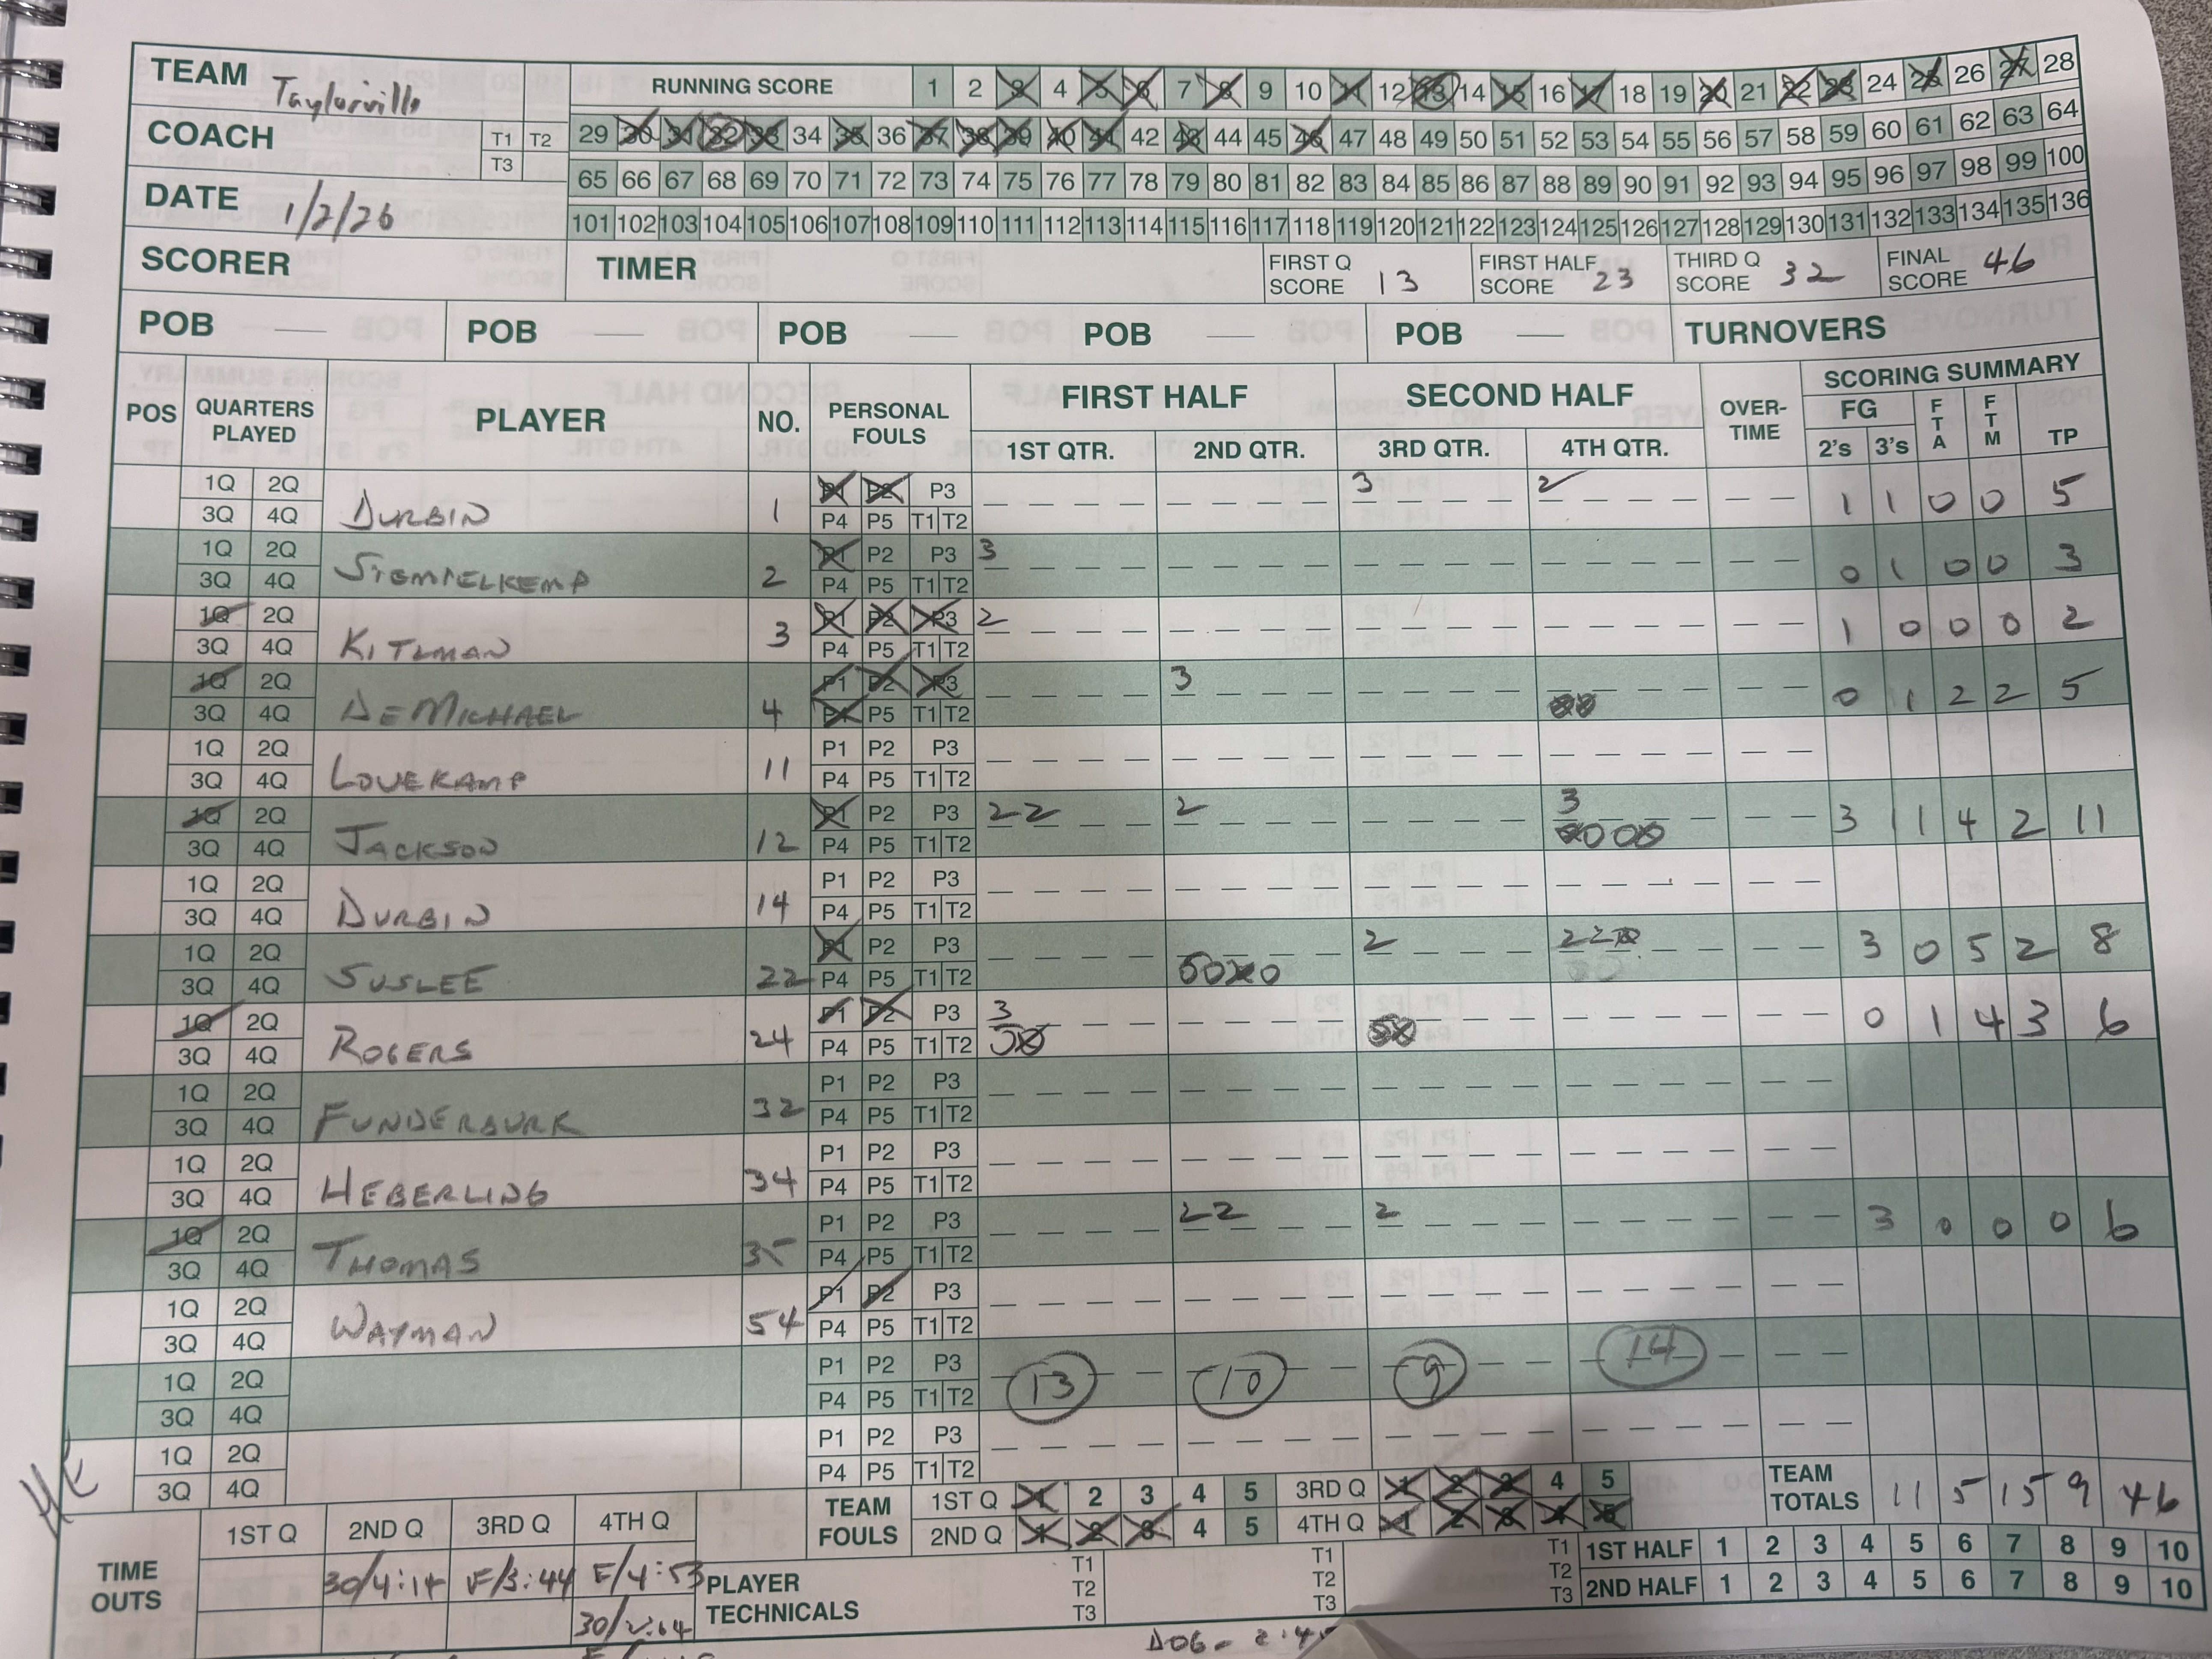 TEAM Taylorville RUNNING SCORE 1 2 3 4 5 6 7 8 9 10 11 12 13 14 15 16 17 18 19 20 21 22 23 24 25 26 27 28
COACH T1 T2 T3 29 30 31 32 33 34 35 36 37 38 39 40 41 42 43 44 45 46 47 48 49 50 51 52 53 54 55 56 57 58 59 60 61 62 63 64
65 66 67 68 69 70 71 72 73 74 75 76 77 78 79 80 81 82 83 84 85 86 87 88 89 90 91 92 93 94 95 96 97 98 99 100
DATE 1/2/26 101 102 103 104 105 106 107 108 109 110 111 112 113 114 115 116 117 118 119 120 121 122 123 124 125 126 127 128 129 130 131 132 133 134 135 136
SCORER TIMER FIRST Q SCORE 13 FIRST HALF SCORE 23 THIRD Q SCORE 32 FINAL SCORE 46
POB POB POB POB POB TURNOVERS
POS QUARTERS PLAYED PLAYER NO. PERSONAL FOULS FIRST HALF SECOND HALF OVER-TIME SCORING SUMMARY
1ST QTR. 2ND QTR. 3RD QTR. 4TH QTR. FG 2's 3's FTA FTM TP
1Q 2Q DURBIN 1 P1 P2 P3 3 2 1 1 0 0 5
3Q 4Q P4 P5 T1 T2
1Q 2Q STEMPELKEMP 2 P1 P2 P3 3 0 1 0 0 3
3Q 4Q P4 P5 T1 T2
1Q 2Q KITLMAN 3 P1 P2 P3 2 1 0 0 0 2
3Q 4Q P4 P5 T1 T2
1Q 2Q DEMICHAEL 4 P1 P2 P3 3 0 1 2 2 5
3Q 4Q P4 P5 T1 T2
1Q 2Q LOVEKAMP 11 P1 P2 P3
3Q 4Q P4 P5 T1 T2
1Q 2Q JACKSON 12 P1 P2 P3 2 2 2 3 3 1 4 2 11
3Q 4Q P4 P5 T1 T2
1Q 2Q DURBIN 14 P1 P2 P3
3Q 4Q P4 P5 T1 T2
1Q 2Q SUSLEE 22 P1 P2 P3 2 2 2 3 0 5 2 8
3Q 4Q P4 P5 T1 T2
1Q 2Q ROGERS 24 P1 P2 P3 3 0 1 4 3 6
3Q 4Q P4 P5 T1 T2
1Q 2Q FUNDERBURK 32 P1 P2 P3
3Q 4Q P4 P5 T1 T2
1Q 2Q HEBERLING 34 P1 P2 P3
3Q 4Q P4 P5 T1 T2
1Q 2Q THOMAS 35 P1 P2 P3 2 2 2 3 0 0 0 6
3Q 4Q P4 P5 T1 T2
1Q 2Q WAYMAN 54 P1 P2 P3
3Q 4Q P4 P5 T1 T2
1Q 2Q P1 P2 P3 13 10 9 14
3Q 4Q P4 P5 T1 T2
1Q 2Q P1 P2 P3
3Q 4Q P4 P5 T1 T2
TEAM FOULS 1ST Q 1 2 3 4 5 3RD Q 1 2 3 4 5 TEAM TOTALS 11 5 15 9 46
2ND Q 1 2 3 4 5 4TH Q 1 2 3 4 5
TIME OUTS 1ST Q 2ND Q 3RD Q 4TH Q
30/4:14 F/3:44 F/4:53
30/2:04
PLAYER TECHNICALS T1 T2 T3 T1 T2 T3 T1 T2 T3
1ST HALF 1 2 3 4 5 6 7 8 9 10
2ND HALF 1 2 3 4 5 6 7 8 9 10